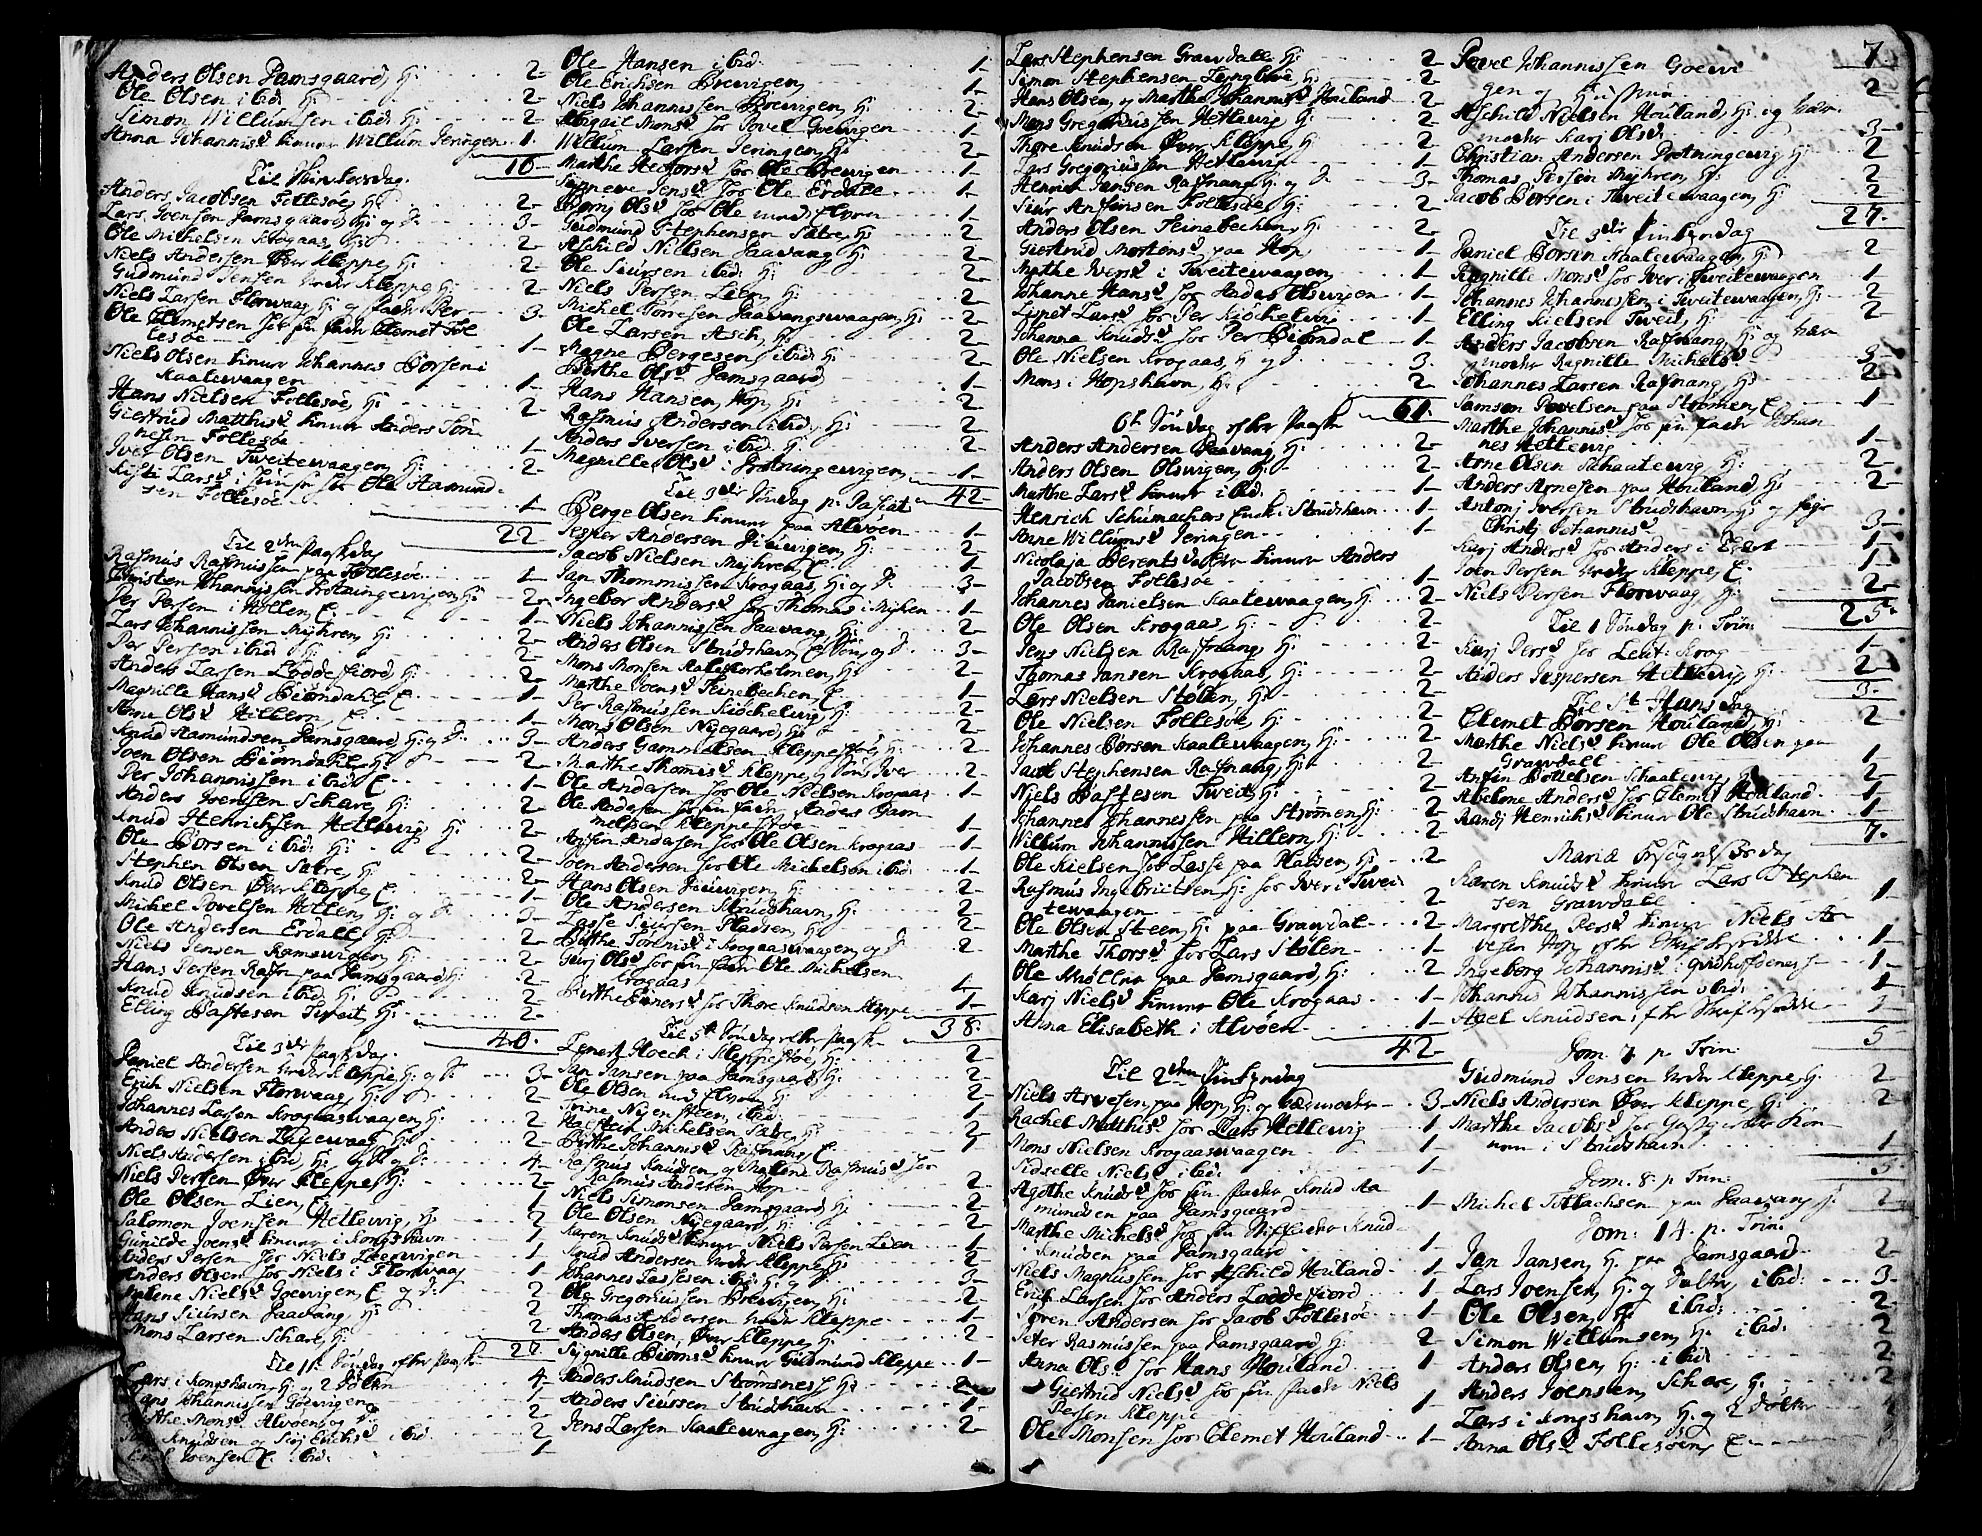 Anders Olsen Damsgaard, H: 2
Ole Olsen ibid H: 2
Simon Willumsen ibid: H: 2
Anna Johannisd hinur Willum Jeringen 1
10
Til Skiærtorsdag.
Anders Jacobsen Follesøe, H: 2
Lars Joensen Damsgaard, H: og D: 3
Ole Michelsen Krogaas, H: 2
Niels Andersen Øvr Kleppe, H: 2
Gudmund Jensen Under Kleppe H: 2
Niels Larsen Florvaag H: og fadr Per 3
Ole Clemetsen for sin fadr Clemet Fol
lesøe 1
Niels Olsen hinur Johannes Børsen i
Kaatevaagen 1
Hans Nielsen Follesøe, H: 2
Giertrud Matthisd hinur Anders Tøn
nesen Follesøe 1
Iver Olsen Tveitevaagen, H: 2
sen Follesøe 1
22
Til 2den Paaskedag
Rasmus Rasmussen paa Follesøe 1
Christen Johannissen Drotningevigen H: 2
Per Persen i Hollen, E 1
Lars Johannissen Myhren, H: 2
Per Persen ibid H: 2
Anders Larsen Loddefiord, H: 2
Magnille Hansd Biørndahl, E 1
Anne Olsd Hillern, E 1
Knud Aamundsen Damsgaard, H: og D. 3
Joen Olsen Biørndahl, H: 2
Per Johannissen ibid E 1
Anders Joensen Schare, H: 2
Knud Henrichsen Hetlevig H: 2
Ole Børsen ibid: H: 2
Stephen Olsen Sætre, H: 2
Knud Olsen Øvr Kleppe, E 1
Michel Povelsen Hetlen, H: og D. 3
Ole Andersen Erdall, H: 2
Niels Jensen Ramsvigen H: 2
Hans Persen Rafn paa Damsgaard, H: 2
Knud Knudsen ibid, H: 2
Elling Baftesen Tveit, H: 2
40.
Til 3die Paaskedag.
Daniel Andersen Under Kleppe, H: og D: 3
Erich Nielsen Florvaag, H: 2
Johannes Larsen Krogaasvaagen, H: 2
Anders Nielsen H: 2
Niels Andersen ibid, H: 4
Niels Persen Øvr Kleppe, H: 2
Ole Olsen Lien, E 1
Salomon Joensen Hetlevig, H: 2
Gunilde Joensd hinur i Kongshavn 1
Anders Persen for Niels Leervigen 1
Anders Olsen for Niels i Florvaag 1
Malene Nielsd Goevigen, E og D. 2
Hans Siursen Haavang, H: 2
Mons Larsen Schare, H: 2
27.
Til 1te Søndag efter Paaske
Lars i Kongshavn, H: og 2 Døttre 4
Hans Johannissen Goevigen 1
Mons Alvøen, og D 2
Knudsen og Erichsd ibid 2
Joensen E. ibid: 1
Ole Hansen ibid: 1
Ole Erichsen Brevigen, 1
Niels Johannissen Brevigen, H: 2
Abigail Monsd for Povel Goevigen 1
Willum Larsen Jeringen, H: 2
Marthe Hectorsd for Ole Brevigen 1
Synneve Jensd for Ole Erdalle 1
Biørn Olsd for Ole 1
Gudmund Stephensen Sætre, H: 2
Aschild Nielsen Haavang H: 2
Ole Siursen ibid: H: 2
Niels Persen Lien, H: 2
Michel Tørresen Haavangsvaagen, H: 2
Ole Larsen Asch, H: 2
Magne Bergesen, ibid: H: 2
Birthe Olsd Damsgaard 1
Hans Hansen, Hop, H: 2
Rasmus Andersen ibid, H: 2
Anders Iversen ibid, H: 2
Magnille Olsd i Drotningevigen 1
42
Til 3die Søndag p: Pascat
Berge Olsen hinur paa Alvøen 1
Jesper Andersen H: 2
Jacob Nielsen Myhren, E 1
Jan Thommissen Krogaas, H: og D. 3
Ingebor Andersd for Thomas i Myhren 1
Niels Johannissen Haavang, H: 2
Anders Olsen Strudshavn, og D. 3
Mons Monsen H: 2
Marthe Joensd Steinebechen, E 1
Per Rasmussen Kiøchelvig, H: 2
Mons Olsen Nygaard, H: 2
Anders Gammelsen Kleppestøe, H: 2
Marthe Thomisd Kleppe, og Søn Iver 2
Ole Andersen for Ole Nielsen Krogaas 1
Ole Andersen for sin fader Anders Gam
melsen Kleppestøe 1
Anfin Andersen for Ole Olsen Krogaas 1
Joen Andersen for Ole Michelsen ibid 1
Hans Olsen H: 2
Ole Andersen Strudshavn, H: 2
Lasse Siursen Pladsen, H: 2
Birthe Tønnisd i Krogaasvaagen, og D. 2
Gurj Olsd for sin fader Ole Michelsen
Krogaas 1
Birthe Einersd for Thore Knudsen Kleppe 1
38.
Til 5te Søndag efter Paask.
Lenert Hoech i Kleppestøe, H: 2
Jan Jansen paa Damsgaard H: 2
Ole Olsen 2
ibid. 1
Hartvig Michelsen Sætre, H: 2
Birthe Johannisd Rafnang, E 1
Rasmus Knudsen, og Malene Rasmusd for
Rasmus Andersen Hop 2
Niels Simonsen Damsgaard, H: 2
Ole Olsen Nygaard, H: 2
Karen Knudsd hinur Niels Persen Lien 1
Knud Andersen Under Kleppe H: 2
Johannes Lassesen ibid H: og D. 3
Ole Gregoriussen Brevigen, H: 2
Thomas Andersen under Kleppe 1
Anders Olsen, Øvr Kleppe, H: 2
Signille Biørnsd hinur Gudmund Kleppe 1
Anders Knudsen Strømsnes, H: 2
Anders Siursen Strudshavn 1
Jens Larsen Kaatevaagen, H: 2
Lars Stephensen Gravdalle H: 2
Simon Stephensen H: 2
Hans Olsen, og Marthe Johannisd Houland 2
Mons Gregoriussen Hetlevig H: 2
Thore Knudsen Øvr Kleppe, H: 2
Lars Gregoriussen Hetlevig 1
Henrich Jansen Rafnang, H: og D. 3
Siur Anfinsen Follesøe, H: 2
Anders Olsen Steinebechen, H: 2
Giertrud Mortensd paa Hop 1
Marthe Iversd i Tveitevaagen 1
Johanne Hansd for Anders Olsvigen 1
Lispet Larsd for Per Kiøchelvig 1
Johanna Knudsd for Per Biørndal 1
Ole Nielsen Krogaas, H: og D. 3
Mons i Hopshavn, H: 2
61.
6te Søndag efter Paaske
Anders Andersen Haavang H: 2
Anders Olsen Olsvigen, H: 2
Marthe Larsd hinur ibid. 1
Henrich Schumachers Enche i Strudshavn 1
Anne Willumsd Jeringen 1
Nicolaja Berentsdatter hinur Anders
Jacobsen Follesøe 1
Johannes Danielsen Kaatevaagen, H: 2
Ole Olsen Krogaas, H: 2
Jens Nielsen Rafnang, H: 2
Thomas Jansen Krogaas, H: 2
Lars Nielsen Stolen, H: 2
Ole Nielsen Follesøe, H: 2
Johannes Børsen Kaatevaagen, H: 2
Jacob Stephensen Rafnang, H: 2
Niels Baftesen Tveit, H: 2
Johannes Johannessen paa Strømmen, H: 2
Willum Johannissen Hillern, H: 2
Ole Nielsen for Lasse paa Pladsen, H: 2
Rasmus Ingebrictsen, H: for Iver i Tvei
tevaagen 2
Ole Olsen Steen, H: paa Gravdal 2
Marthe Thorsd for Lars Stolen 1
Ole Møllna paa Damsgaard, H: 2
Karj Nielsd hinur Ole Krogaas 1
Anna Elisabeth i Alvøen 1
42
Til 2den Pintzedag
Niels Arvesen paa Hop, H: og Værmoder 3
Rachel Matthisd for Lars Hetlevig 1
Mons Nielsen Krogaasvaagen 1
Sidselle Nielsd ibid: 1
Agethe Knudsd for sin fader Knud Aa
mundsen paa Damsgaard 1
Marthe Michelsd for sin Stiffader Knud
Knudsen paa Damsgaard 1
Niels Magnussen for Aschild Houland 1
Erich Larsen for Anders Loddefiord 1
Søren Andersen for Jacob Follesøe 1
Peter Rasmussen paa Damsgaard, H: 2
Anna Olsd for Hans Houland 1
Giertrud Nielsd for sin fader Niels
Persen Kleppe 1
Ole Monsen for Clemet Houland 1
7
Povel Johannissen Goevi
gen og Hustru 2
Aschild Nielsen Houland, H: og Vær
moder Karj Olsd 3
Christian Andersen Drotningevig H: 2
Thomas Persen Myhren, H: 2
Jacob Børsen i Tveitevaagen, H: 2
27.
Til 3die Pintzedag
Daniel Børsen Kaatevaagen, H: 2
Ragnille Monsd for Iver i Tveitevaagen 1
Johannes Johannissen i Tveitevaagen, H: 2
Elling Nielsen Tveit, H: 2
Anders Jacobsen Rafnang, H: og Vær
moder Ragnille Michelsd 3
Johannes Larsen Rafnang, H: 2
Samson Povelsen paa Strømen, E 1
Marthe Johannisd for sin fader Johan
nes Hetlevig 1
Arne Olsen Schaatevig H: 2
Anders Arnesen paa Houland, H: 2
Antonj Iversen Strudshavn, H: og
Christj Johannisd 3
Karj Andersd for Anders i 1
Joen Persen Under Kleppe, E. 1
Niels Persen Florvaag H: 2
25.
Til 1 Søndag p. Trin:
Karj Persd for Krog 1
Anders Jespersen Hetlevig, H: 2
3.
Til St Hans dag
Clemet Børsen Houland, H: 2
Marthe Nielsd hinur Ole Olsen paa
Gravdall 1
Anfin Bottelsen Schaatevig, H: 2
Abelone Andersd for Clemet Houland 1
Randj Henrichsd hinur Ole Strudshavn 1
7.
Mariæ Besøgelses dag
Karen Knudsd hinur Lars Stephen
sen Gravdall 1
Margrethe Persd hinur Niels Ar
vesen Hop efter Skriftstykke 1
Ingeborg Johannisd i 1
Johannis Johannissen ibid. 1
Axel Knudsen efter Skriftstykke 1
5
Dom. 7 p. Trin:
Gudmund Jensen Under Kleppe, H. 2
Niels Andersen Øvr Kleppe, H: 2
Marthe Jacobsd for
i Strudshavn 1
5.
Dom. 8. p Trin:
Michel Tollachsen paa Haavang H: 2
Dom: 14. p. Trin:
Jan Jansen, H: paa Damsgaard 2
Lars Joensen, H: og Datter, ibid: 3
Ole Olsen, H: ibid: 2
Simon Willumsen, H: ibid: 2
Anders Olsen, H: ibid 2
Anders Joensen, Schare, H: 2
Lars i Kongshavn, H: og 2 Døttre 4
Anna Olsd Follesøen, E